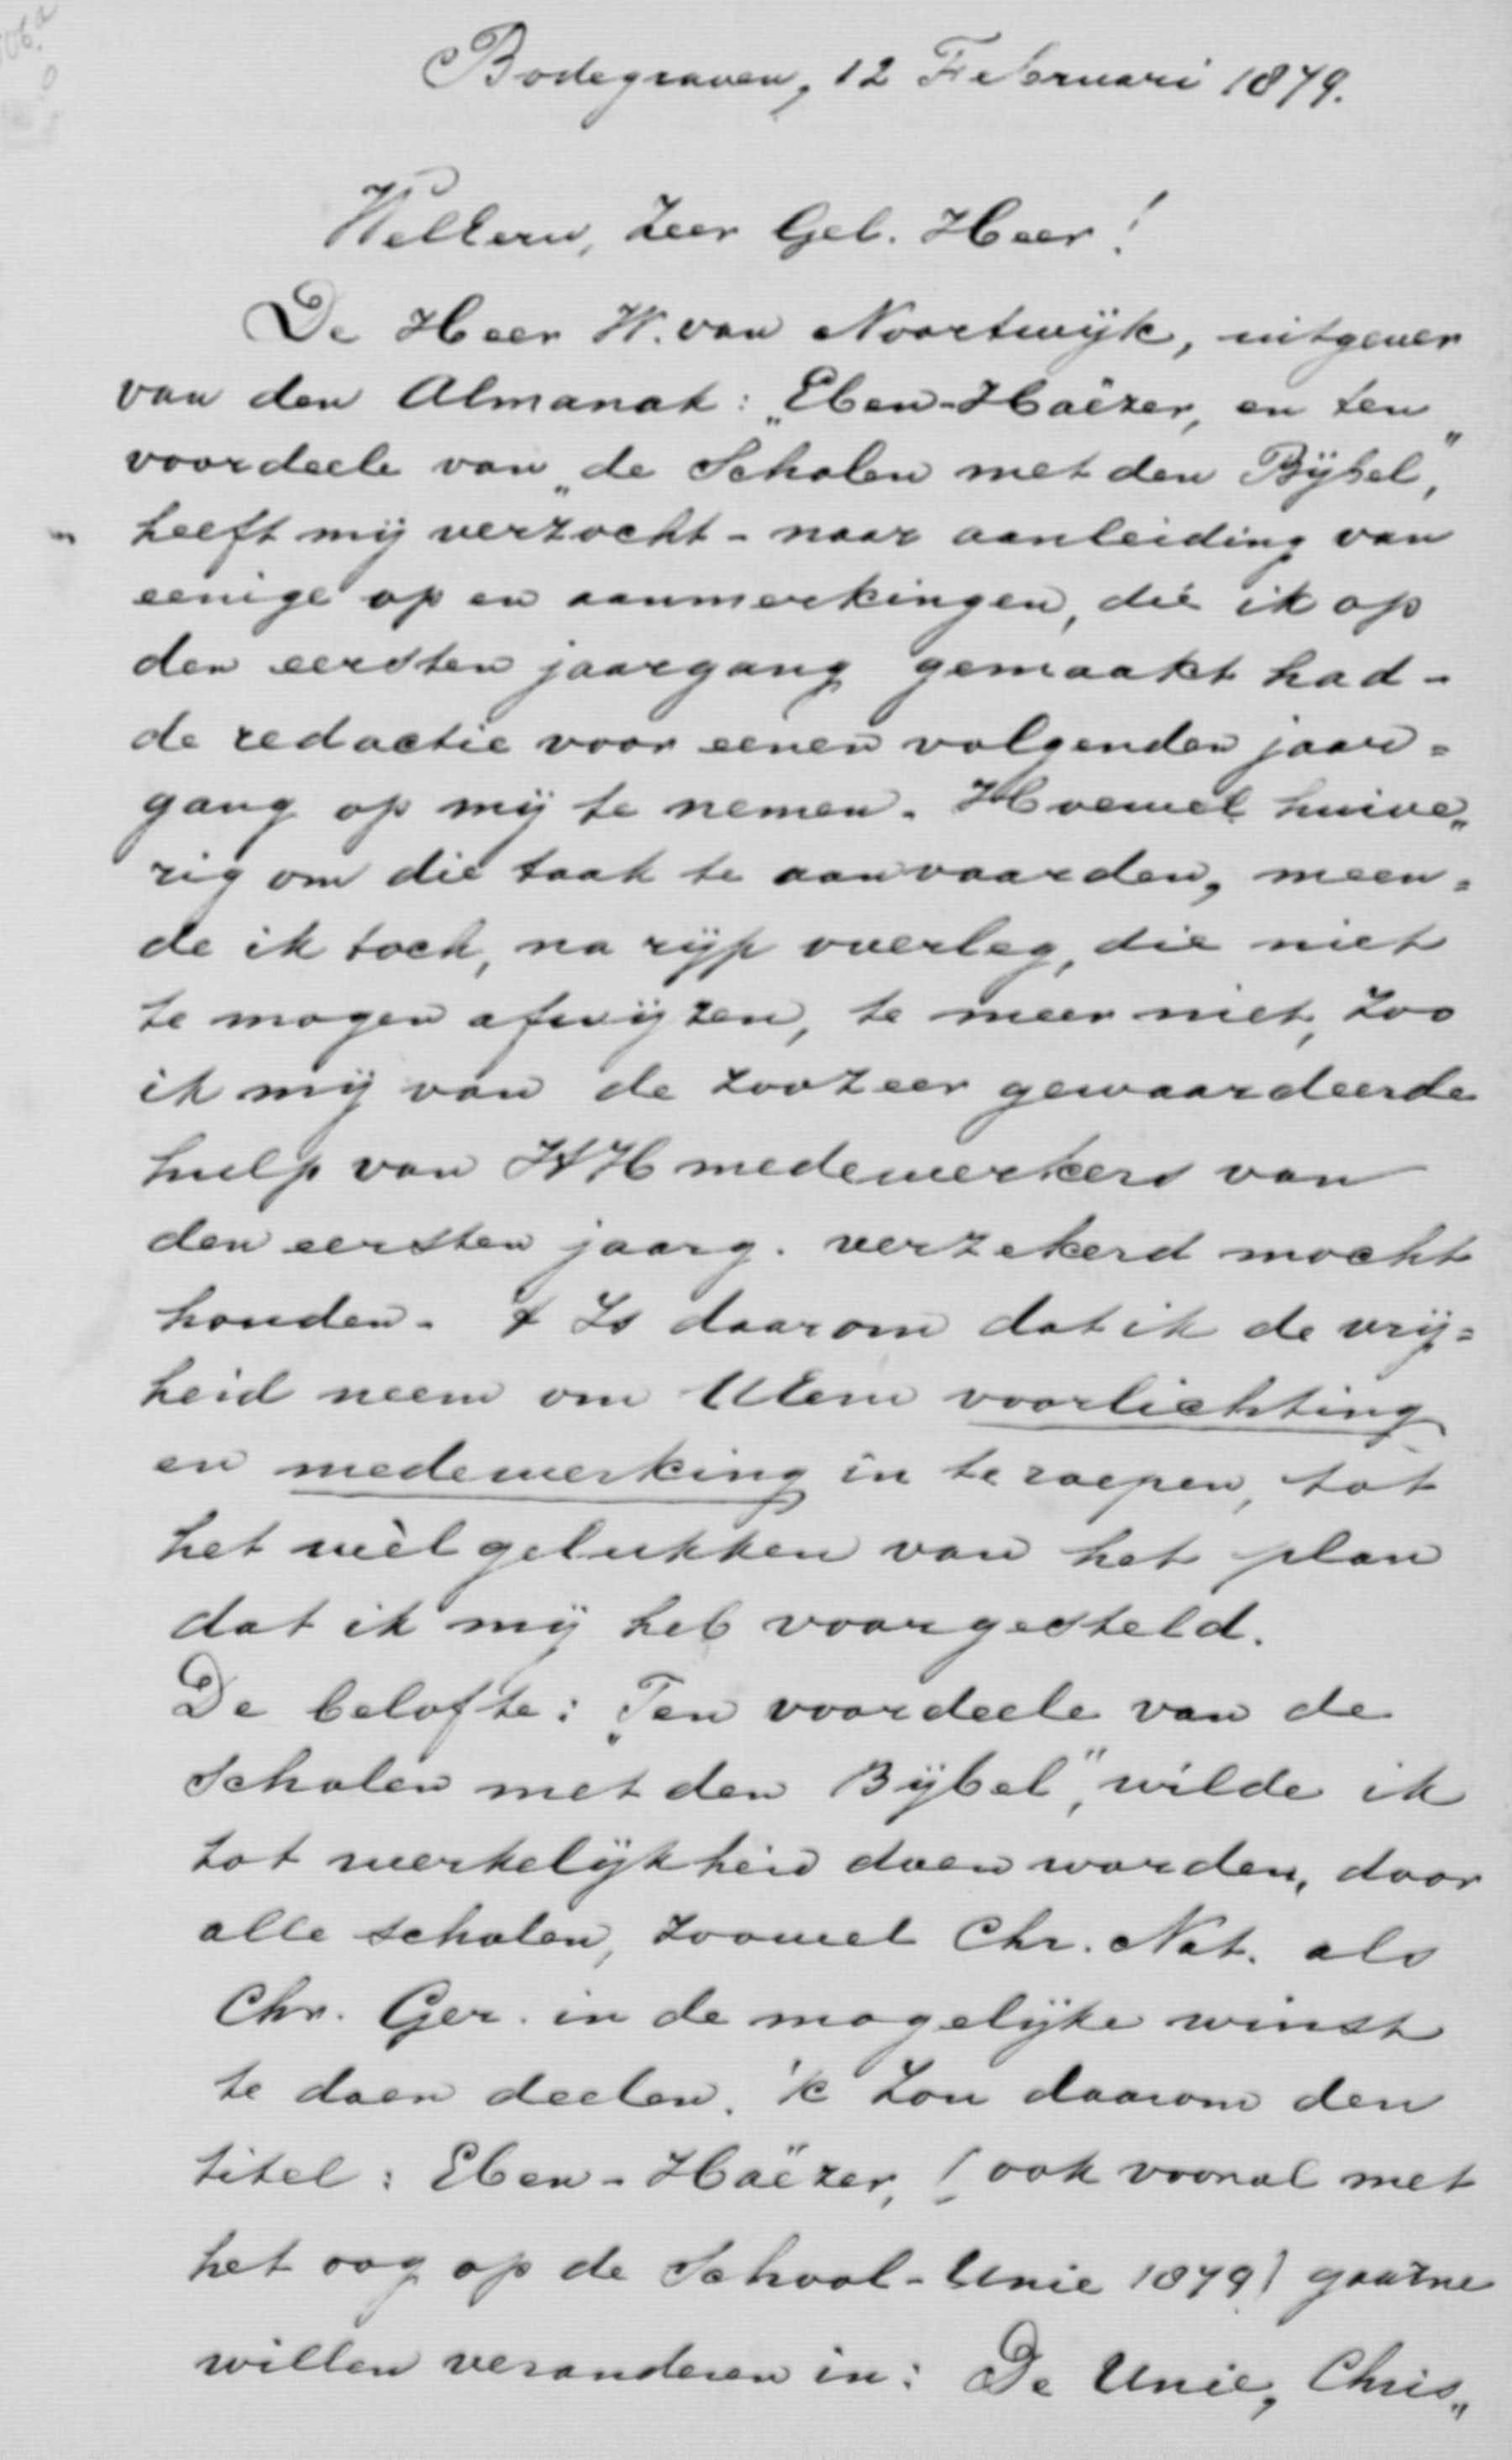 Bodegraven, 12 Februari 1879.
WelEerw, Zeer Gel. Heer!
De Heer W. van Noortwijk, uitgever
van den Almanak: „Eben-Haëzer, en ten
voordeele van „de Scholen met den Bijbel,"
heeft mij verzocht - naar aanleiding van
eenige op en aanmerkingen, die ik op
den eersten jaargang gemaakt had -
de redactie voor eenen volgenden jaar=
gang op mij te nemen. Hoewel huive„
rig om die taak te aanvaarden, meen=
de ik toch, na rijp overleg, die niet
te mogen afwijzen, te meer niet, zoo
ik mij van de zoozeer gewaardeerde
hulp van HH medewerkers van
den eersten jaarg. verzekerd mocht
houden. 't Is daarom dat ik de vrij=
heid neem om UEerw voorlichting
en medewerking in te roepen, tot
het wèl gelukken van het plan
dat ik mij heb voorgesteld.
De belofte: „Ten voordeele van de
Scholen met den Bijbel", wilde ik
tot werkelijkheid doen worden, door
alle scholen, zoowel Chr. Nat. als
Chr. Ger. in de mogelijke winst
te doen deelen. 'k Zou daarom den
titel: Eben-Haëzer, (ook vooral met
het oog op de School-Unie 1879) gaarne
willen veranderen in: De Unie, Chris„